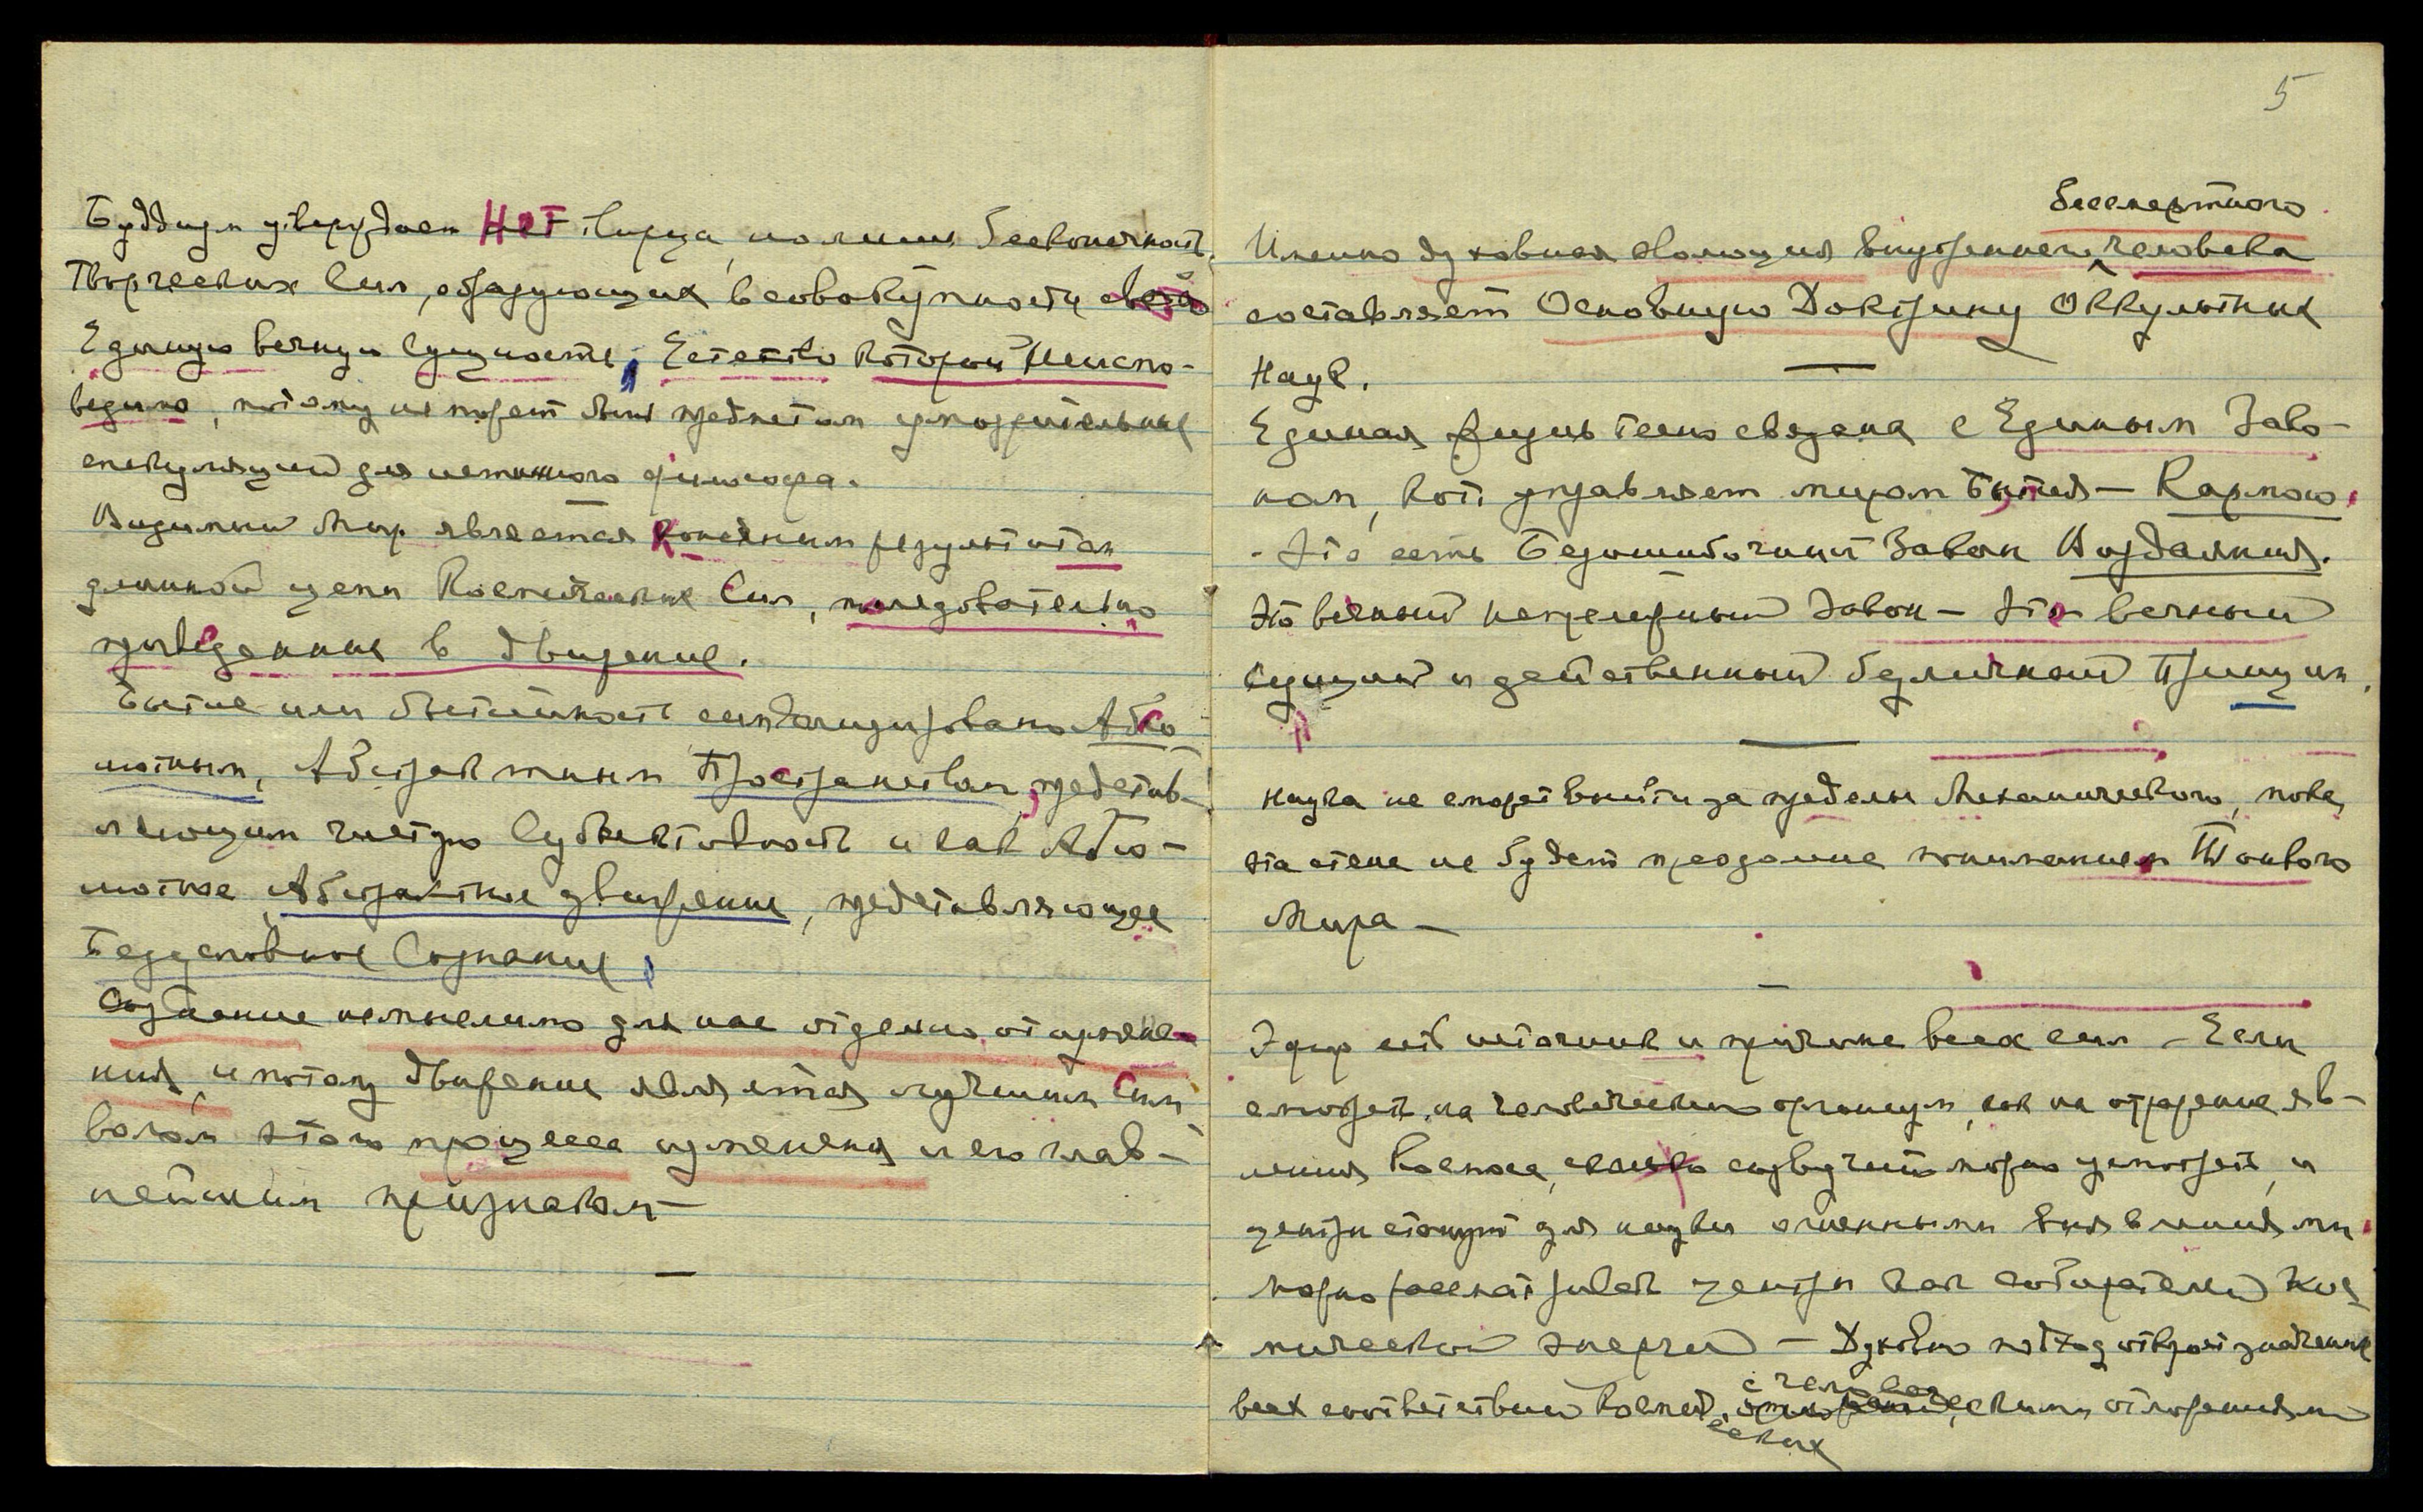 Буддизм утверждает Нет творца, но лишь бесконечность
Творческих Сил, образующих в совокупности
Единую вечную Сущность, Естество которой Неиспо-
ведимо, потому не может быть предметом умозрительных
спекуляций для истинного философа.
Видимый Мир является Конечным результатом
длинной цепи Космических Сил, последовательно
приведенных в движение.
Бытие или бытийность символизировано Абсо
лютным, Абстрактным Пространством, представ-
ляющим чистую Субъективность и как Абсо-
лютное Абстрактное движение, представляющее
Безусловное Сознание,
Сознание немыслимо для нас отдельно от измене-
ния, и потому движение является лучшим Сим
волом этого процесса изменения и его глав-
нейшим признаком —
5
бессмертного
Именно духовная эволюция внутреннего человека
составляет Основную Доктрину Оккультных
Наук.
Единая жизнь тесно связана с Единым Зако-
ном, кот управляет миром Бытия — Кармою.
- Это есть Безошибочный Закон Воздаяния.
Это вечный непреложный Закон — Это вечный
Сущий и действенный безличный Принцип,
Наука не сможет выйти за пределы Механического, пока,
эта стена не будет преодолена пониманием Тонкого
Мира —
Эфир есть источник и причина всех сил — Если
смотреть на человеческий организм, как на отражение яв-
ления Космоса, созвучий можно усмотреть, и
центры станут для науки огненными явлениями.
Можно рассматривать центры как собирателей Кос
мической энергии — Духовный подход откроет значение
всех соответствий Космич
еских
с человеческими отложениями